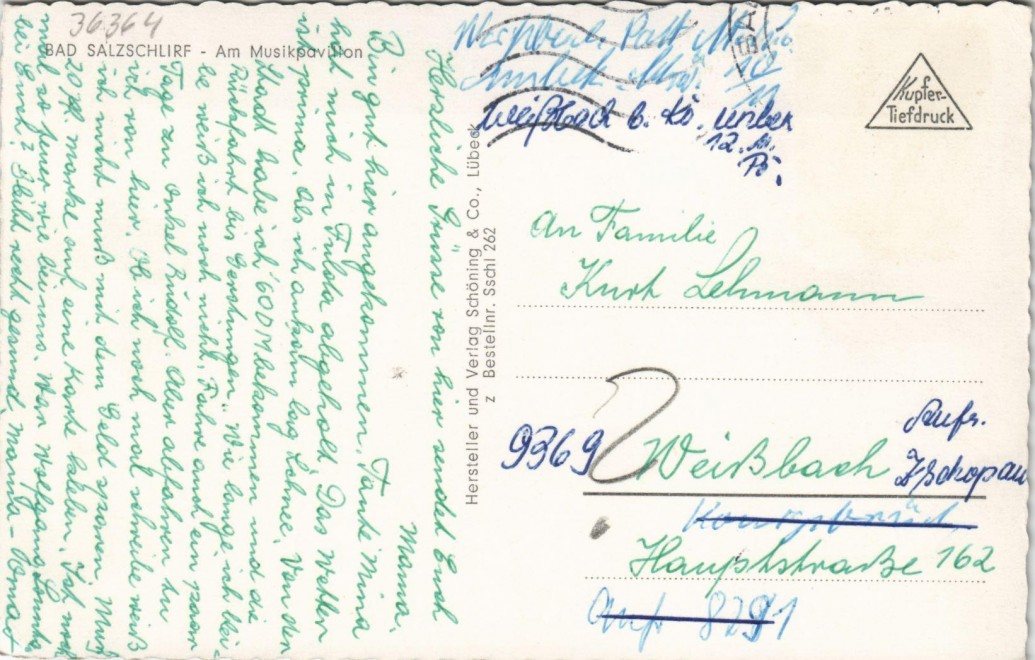 36364
BAD SALZSCHLIRF - Am Musikpavillon
Herzliche Grüsse von hier sendet Euch
Mama.
Bin gut hier angekommen, Tante Mina
hat mich in Fulda abgeholt. Das Wetter
ist prima. Als ich ankam lag Schnee. Von der
Stadt habe ich 60 DM bekommen und die
Rückfahrt bis Gerstungen. Wie lange ich blei-
be weiß ich noch nicht. Fahre auch ein paar
Tage zu Onkel Rudolf. Aber abfahren tu
ich von hier. Ob ich noch mal schreibe weiß
ich nicht muß mit dem Geld sparen. Muß
mal so teuer wie bei uns. Wenn Wolfgang
20 Pf. marke auf eine Karte kleben. Ist
bei Euch? Bleibt recht gesund. Mama - Oma
Hersteller und Verlag Schöning & Co., Lübeck
z Bestellnr. Sschl 262
Kupfer-
Tiefdruck
10
11
Weißbach b. Kö. unbek
12. 11.
An Familie
Kurt Lehmann
9369
Weißbach
Aufr.
Zschopau
Königsbrück
Hauptstraße 162
Anf 8291